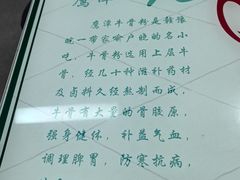 鹰潭
鹰潭牛骨粉是赣饶
皖一带家喻户晓的名小
吃，牛骨粉选用上层牛
骨，经几十种滋补药材
及卤料久经熬制而成，
牛骨有大量的骨胶原，
强身健体、补益气血
调理脾胃，防寒抗病，